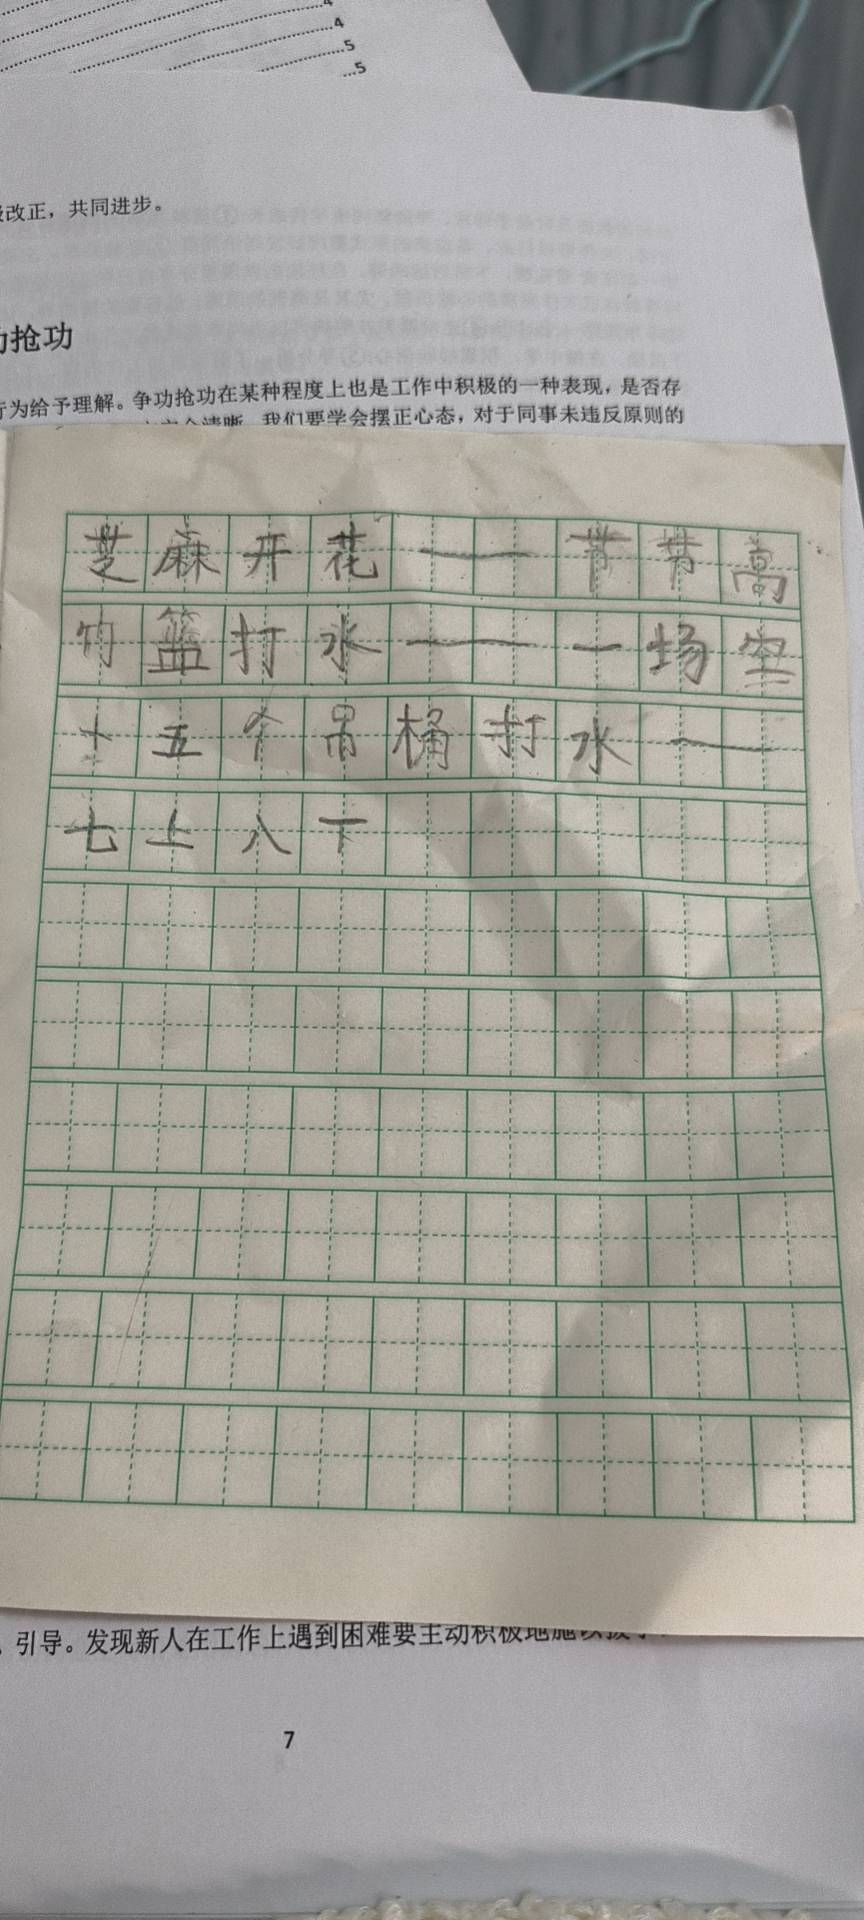 4
4
5
5
改正，共同进步。
抢功
行为给予理解。争功抢功在某种程度上也是工作中积极的一种表现，是否存
清晰，我们要学会摆正心态，对于同事未违反原则的
芝麻开花——节节高
竹篮打水——一场空
十五个吊桶打水——
七上八下
引导。发现新人在工作上遇到困难要主动积极地施以援手
7